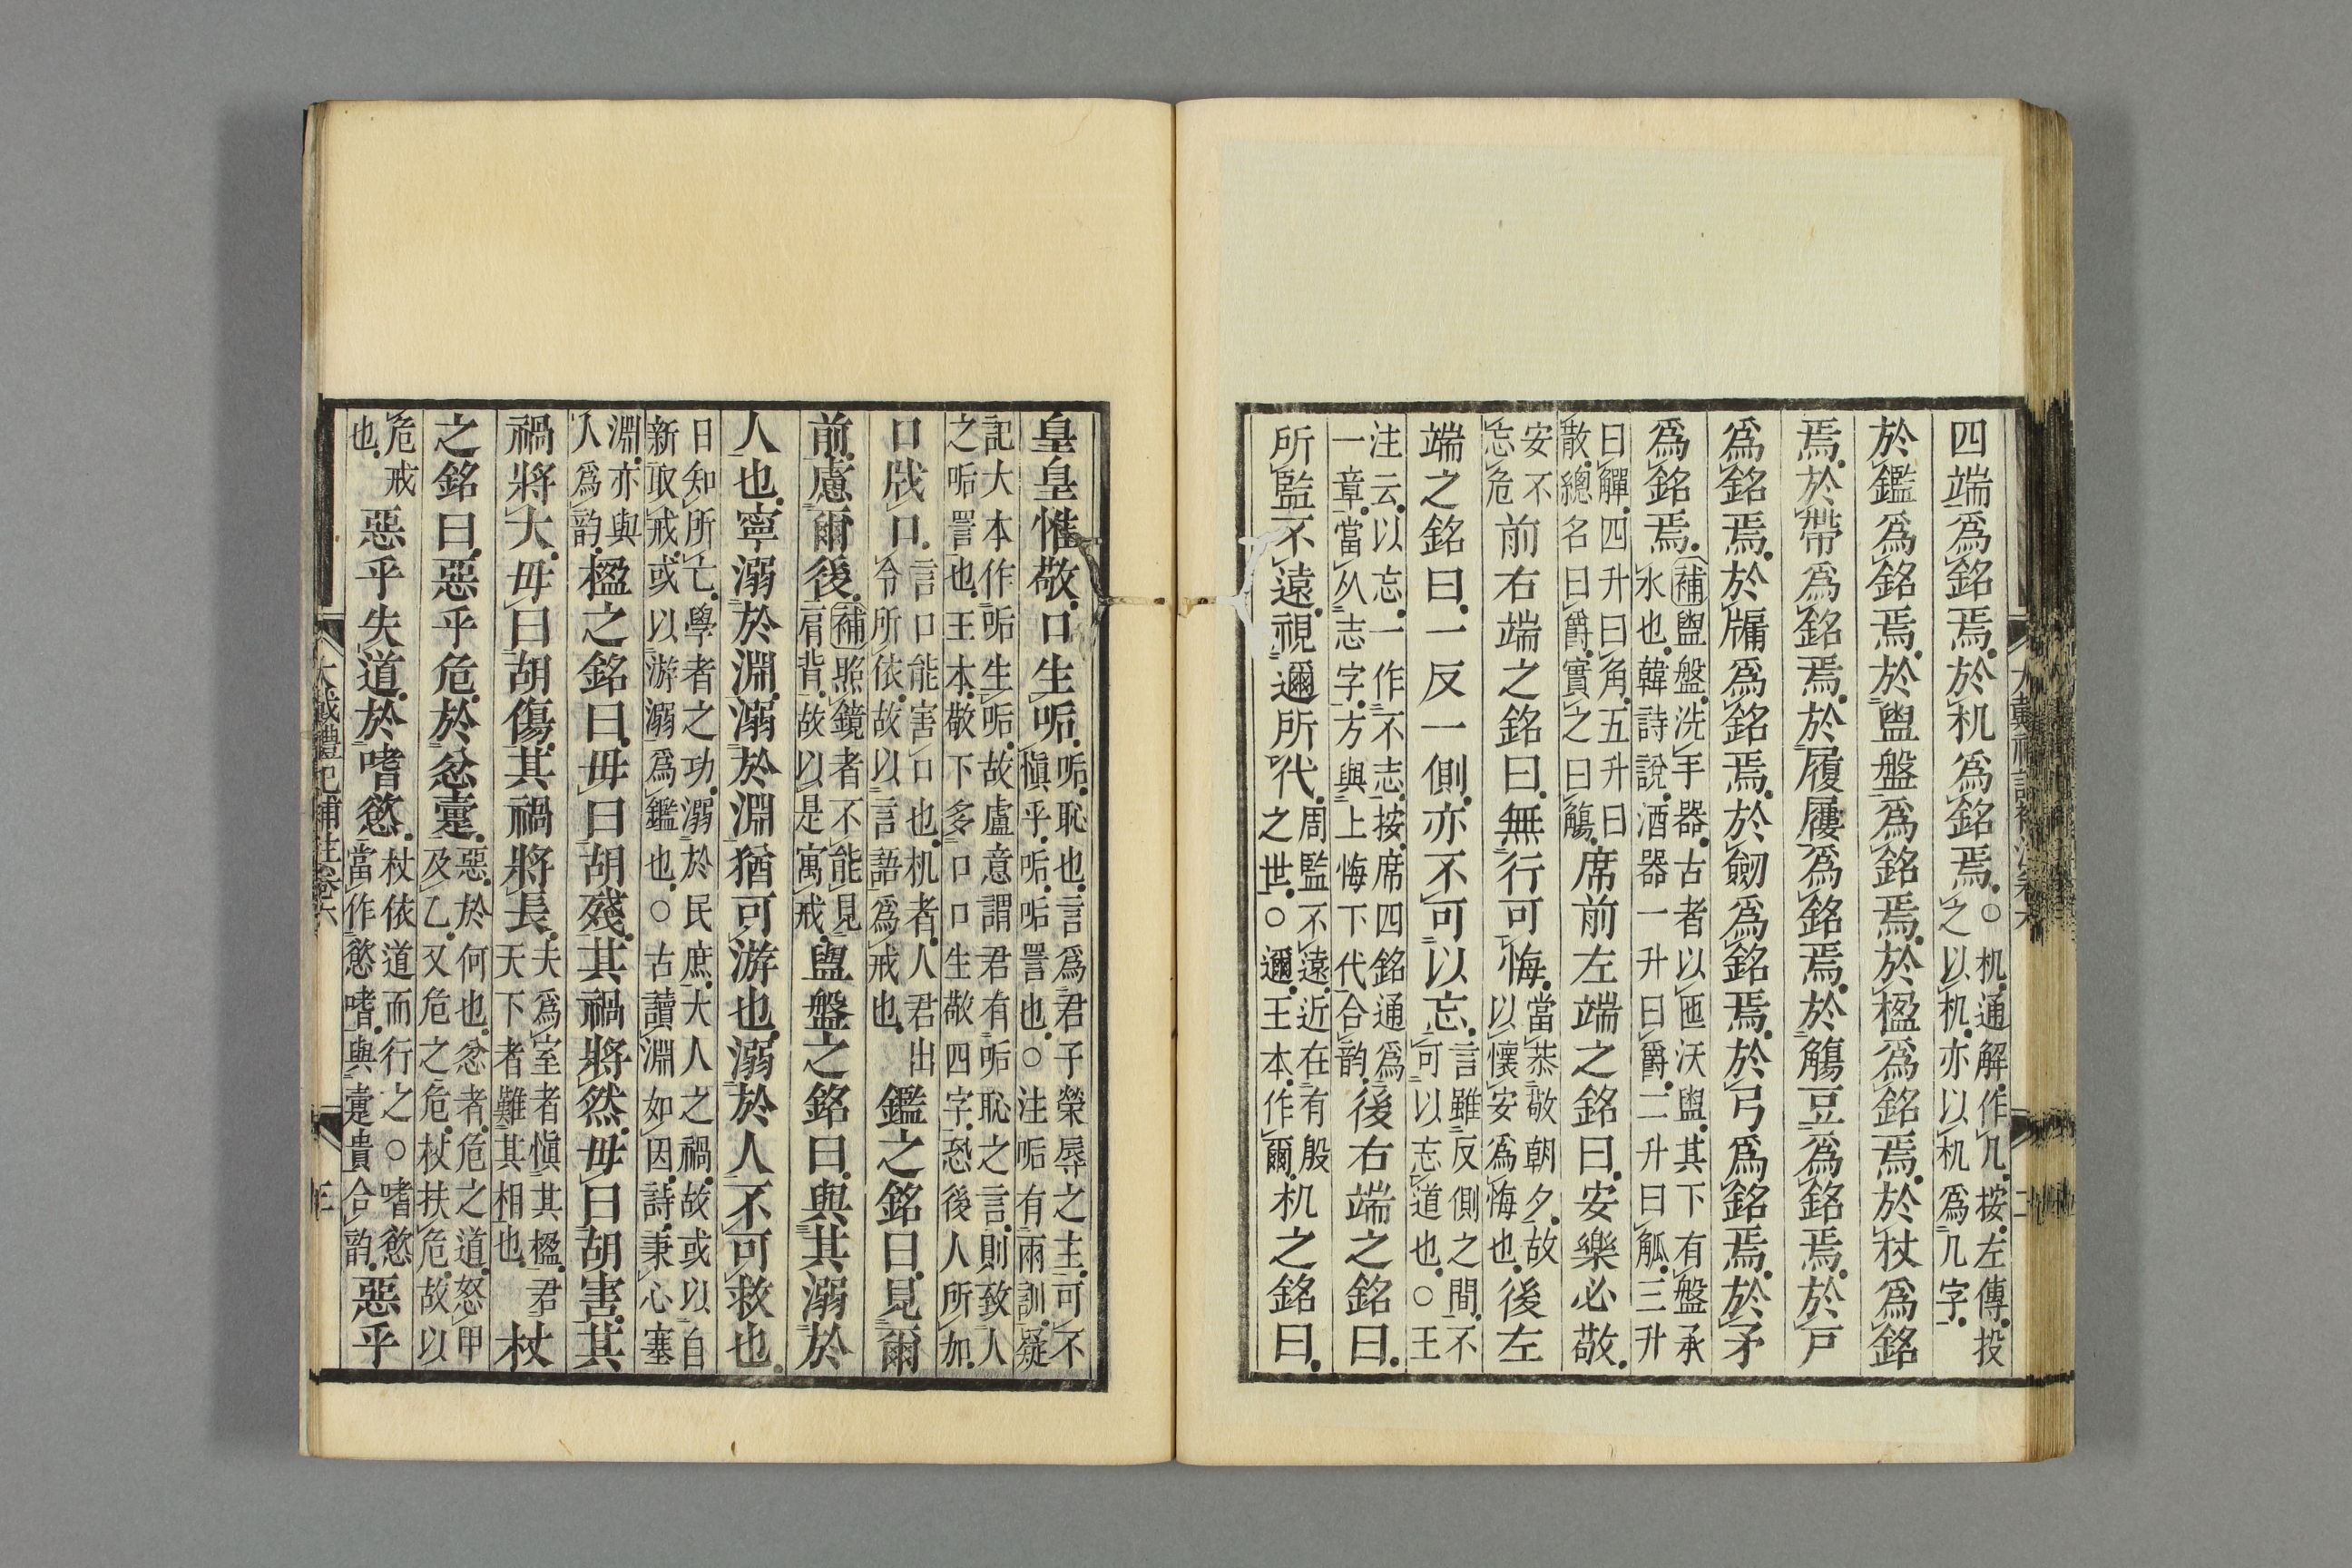 大戴禮記補注卷六　二
四端爲銘焉。於机爲銘焉。○机。通解。作几。按。左傳。投之以机。亦以机爲几字。
於鑑爲銘焉。於盥盤爲銘焉。於楹爲銘焉。於杖爲銘
焉。於帶爲銘焉。於履屨爲銘焉。於觴豆爲銘焉。於戸
爲銘焉。於牖爲銘焉。於劒爲銘焉。於弓爲銘焉。於矛
爲銘焉。補盥盤。洗手器。古者以匜沃盥。其下有盤承水也。韓詩說。酒器一升曰爵。二升曰觚。三升
曰觶。四升曰角。五升曰散。總名曰爵。實之曰觴。席前左端之銘曰。安樂必敬。
安不忘危前右端之銘曰。無行可悔。當恭敬朝夕。故以懷安爲悔也。後左
端之銘曰。一反一側。亦不可以忘。言雖反側之間。不可以忘道也。○王
注云。以忘。一作不志。按。席四銘通爲一章。當从志字。方與上悔下代合韵。後右端之銘曰。
所監不遠。視邇所代。周監不遠。近在有殷之世。○邇。王本。作爾。机之銘曰。
皇皇惟敬。口生㖃。㖃。恥也。言爲君子榮辱之主。可不愼乎。㖃。㖃詈也。○注㖃有兩訓。疑
記大本作㖃生㖃。故盧意謂君有㖃恥之言。則致人之㖃詈也。王本。敬下多口口生敬四字。恐後人所加。
口戕口。言口能害口也。机者。人君出令所依。故以言語爲戒也。鑑之銘曰。見爾
前。慮爾後。補照鏡者不能見肩背。故以是寓戒。盥盤之銘曰。與其溺於
人也。寧溺於淵。溺於淵猶可游也。溺於人不可救也。
日知所亡。學者之功。溺於民庶。大人之禍。故或以自新取戒。或以游溺爲鑑也。○古讀淵如因。詩。秉心塞
淵。亦與人爲韵。楹之銘曰。毋曰胡殘。其禍將然。毋曰胡害。其
禍將大。毋曰胡傷。其禍將長。夫爲室者愼其楹。君天下者難其相也。杖
之銘曰。惡乎危。於忿疐。惡。於何也。忿者。危之道。怒甲及乙。又危之危。杖扶危。故以
危戒也。惡乎失道。於嗜慾。杖依道而行之。○嗜慾當作慾嗜。與疐貴合韵。惡乎
大戴禮記補注卷六　三